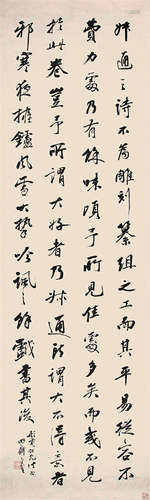 叔通之詩不為雕刻纂組之工而其平易從容不
費力處乃有餘味頃予所見佳處多矣而或不見
於此卷豈予所謂大好者乃叔通所謂大不得意者
邪寒夜擁鑪風雪大吟諷之餘戲書其後
仁兄法正